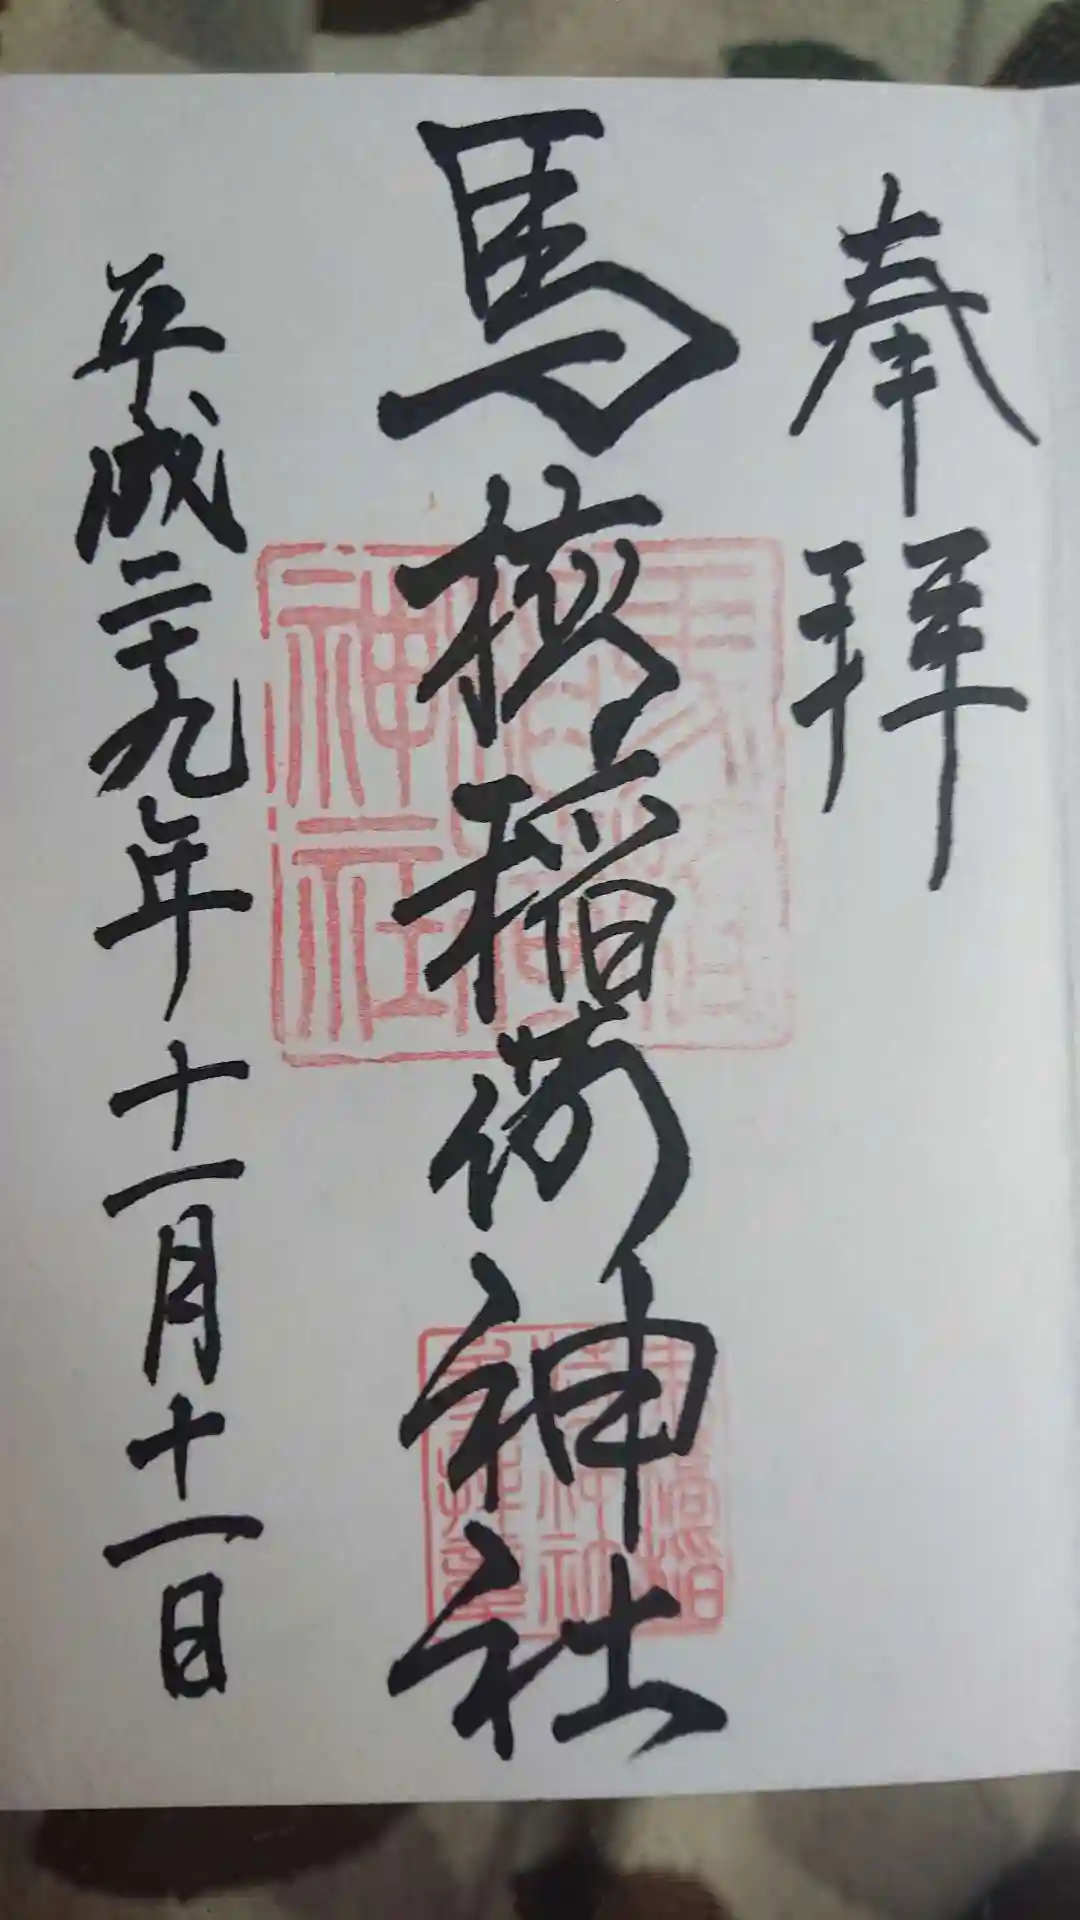 奉拝
馬橋稲荷神社
平成二十九年十一月十一日
馬橋
稲荷
神社